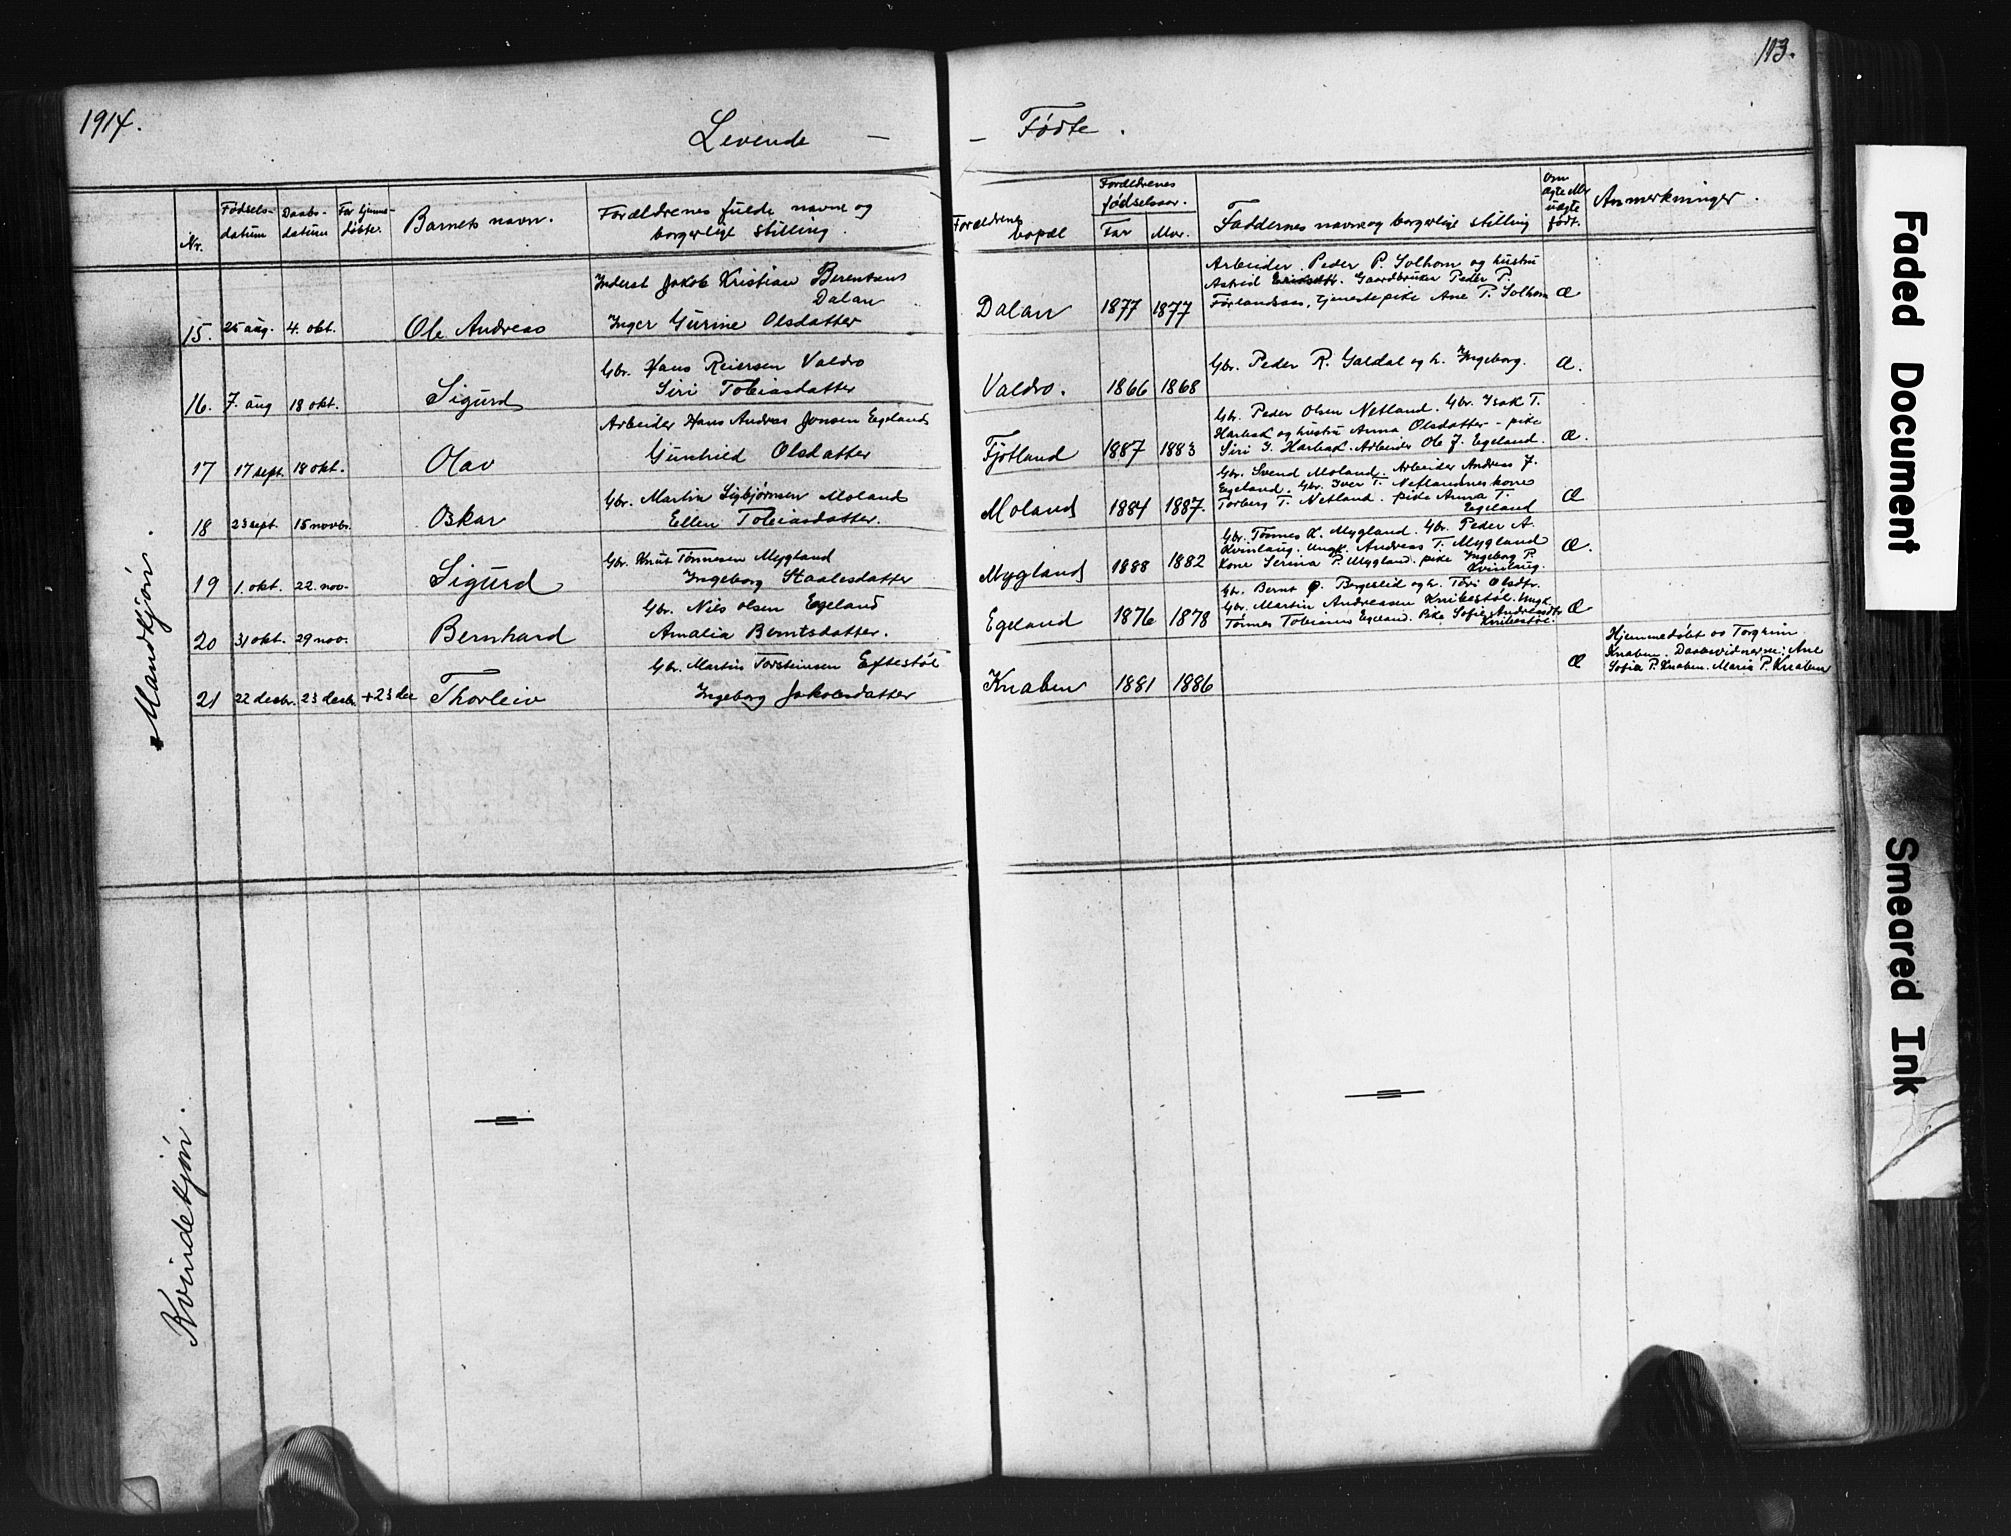 1914.
Levende —
— Födte.
113.
Nr.
Födsels-
datum
Daabs-
datum
For hjemme-
döbte.
Barnets navn.
Forældrenes fulde navne og
borgerlige stilling.
Forældrenes
bopæl
Forældrenes
fødselsaar.
Far
Mor.
Faddernes navne og borgerlige stilling
Om
ægte eller
uægte
født.
Anmerkninger.
Mandkjøn.
15. 25 aug. 4. okt. Ole Andreas
Inderst Jakob Kristian Berentsen
Dalan
Inger Gurine Olsdatter
Dalan 1877 1877
Arbeider Peder P. Solhom og hustru
Astrid Gaardbruker Peder P.
Førlandsaas, tjenestepike Ane P. Solhom
Æ
16. 7. aug 18 okt. Sigurd
Gbr. Hans Reiersen Valdro
Siri Tobiasdatter
Valdro. 1866 1868
Gbr. Peder R. Galdal og h. Ingeborg.
Æ.
17 17 sept. 18 okt. Olav
Arbeider Hans Andreas Jonsen Egeland
Gunhild Olsdatter
Fjotland 1887 1883
Gbr. Peder Olsen Netland. Gbr. Isak T.
Harbak og hustru Anna Olsdatter - pike
Siri I. Harbak. Arbeider Ole J. Egeland.
Æ.
18 23 sept. 15 novbr. Oskar
Gbr. Martin Sigbjørnsen Moland
Ellen Tobiasdatter.
Moland 1884 1887.
Gbr. Svend Moland. Arbeider Andreas J.
Egeland. Gbr. Iver T. Netland kone
Torberg T. Netland. pike Anna T.
Egeland
Æ
19 1. okt. 22. nov. Sigurd
Gbr. Knut Tønnesen Mygland
Ingeborg Staalesdatter
Mygland 1888 1882
Gbr. Tønnes K. Mygland. Gbr. Peder A.
Kvinlaug. Ungk. Andreas T. Mygland
Kone Serina P. Mygland. pike Ingeborg P.
Kvinlaug.
Æ.
20 31 okt. 29 nov. Bernhard
Gbr. Nils Olsen Egeland
Amalia Berntsdatter.
Egeland 1876 1878
Gbr. Bernt O. Bergeslid og h. Tori Olsdtr.
Gbr. Martin Andreasen Knibestøl. Ungk.
Tønnes Tobiassen Egeland. Pike Sofie Andreasdtr
Knibestøl.
Æ
21 22 desbr. 23 desbr. +23 des Thorleiv
Gbr. Martin Torsteinsen Eftestøl
Ingeborg Jakobsdatter
Knaben 1881 1886
Æ
Hjemmedøbt av Torgrim
Knaben. Daabsvidnerne: Ane
Sofia P. Knaben. Maria P. Knaben
Kvindekjøn.
Faded Document
Smeared Ink